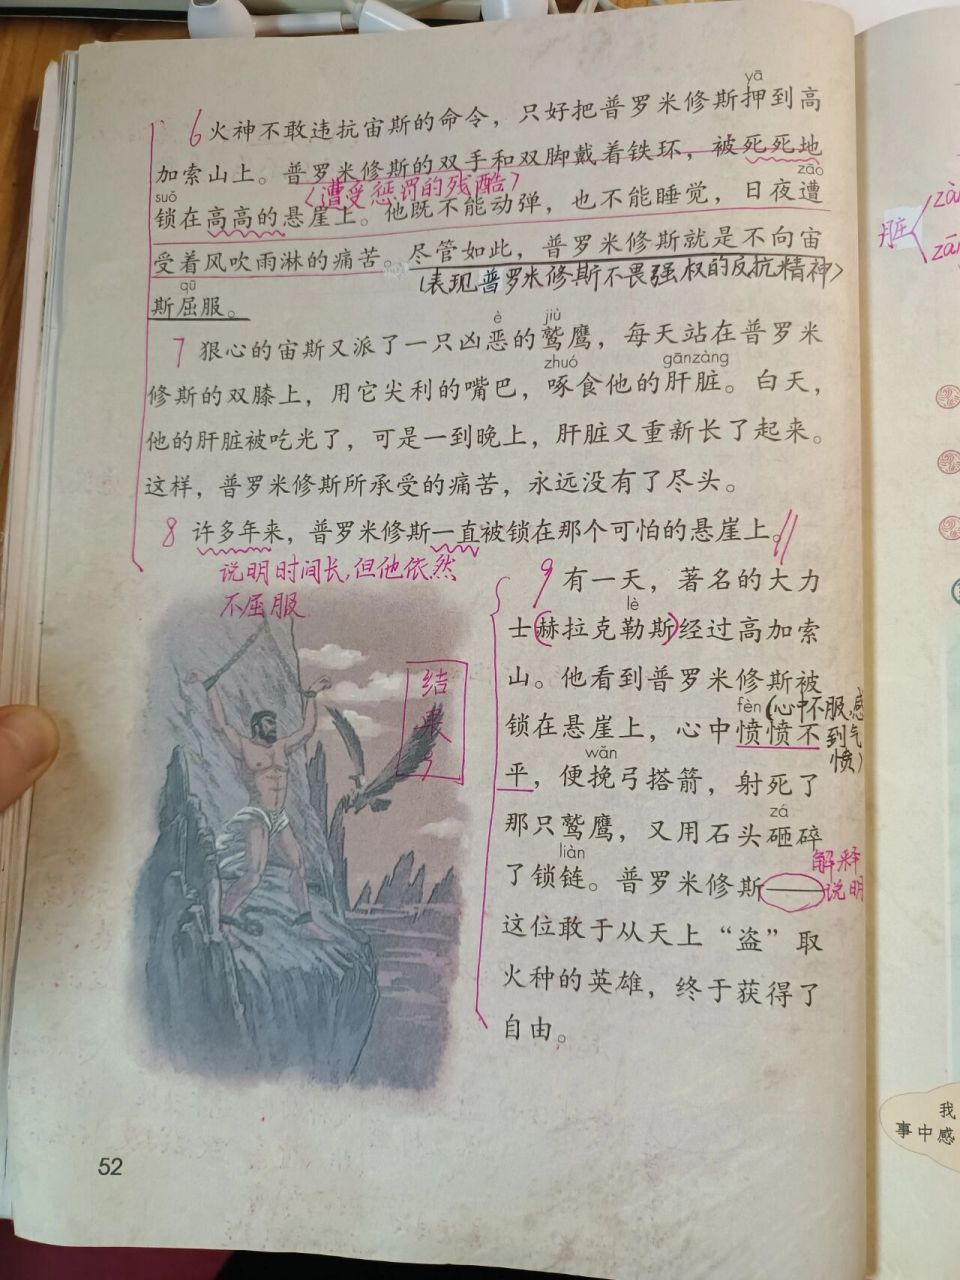 yā
6 火神不敢违抗宙斯的命令，只好把普罗米修斯押到高
加索山上。普罗米修斯的双手和双脚戴着铁环，被死死地
（遭受惩罚的残酷）
suǒ zāo
锁在高高的悬崖上。他既不能动弹，也不能睡觉，日夜遭
受着风吹雨淋的痛苦。尽管如此，普罗米修斯就是不向宙
（表现普罗米修斯不畏强权的反抗精神）
qū
斯屈服。
è jiù
7 狠心的宙斯又派了一只凶恶的鹫鹰，每天站在普罗米
zhuó gānzàng
修斯的双膝上，用它尖利的嘴巴，啄食他的肝脏。白天，
他的肝脏被吃光了，可是一到晚上，肝脏又重新长了起来。
这样，普罗米修斯所承受的痛苦，永远没有了尽头。
8 许多年来，普罗米修斯一直被锁在那个可怕的悬崖上。
说明时间长，但他依然
不屈服
9 有一天，著名的大力
lè
士（赫拉克勒斯）经过高加索
山。他看到普罗米修斯被
fèn（心中不服，感
锁在悬崖上，心中愤愤不
到气
愤）
wǎn
平，便挽弓搭箭，射死了
zá
那只鹫鹰，又用石头砸碎
liàn
了锁链。普罗米修斯——
解释
说明
这位敢于从天上“盗”取
火种的英雄，终于获得了
自由。
结
52
脏
我
事中感